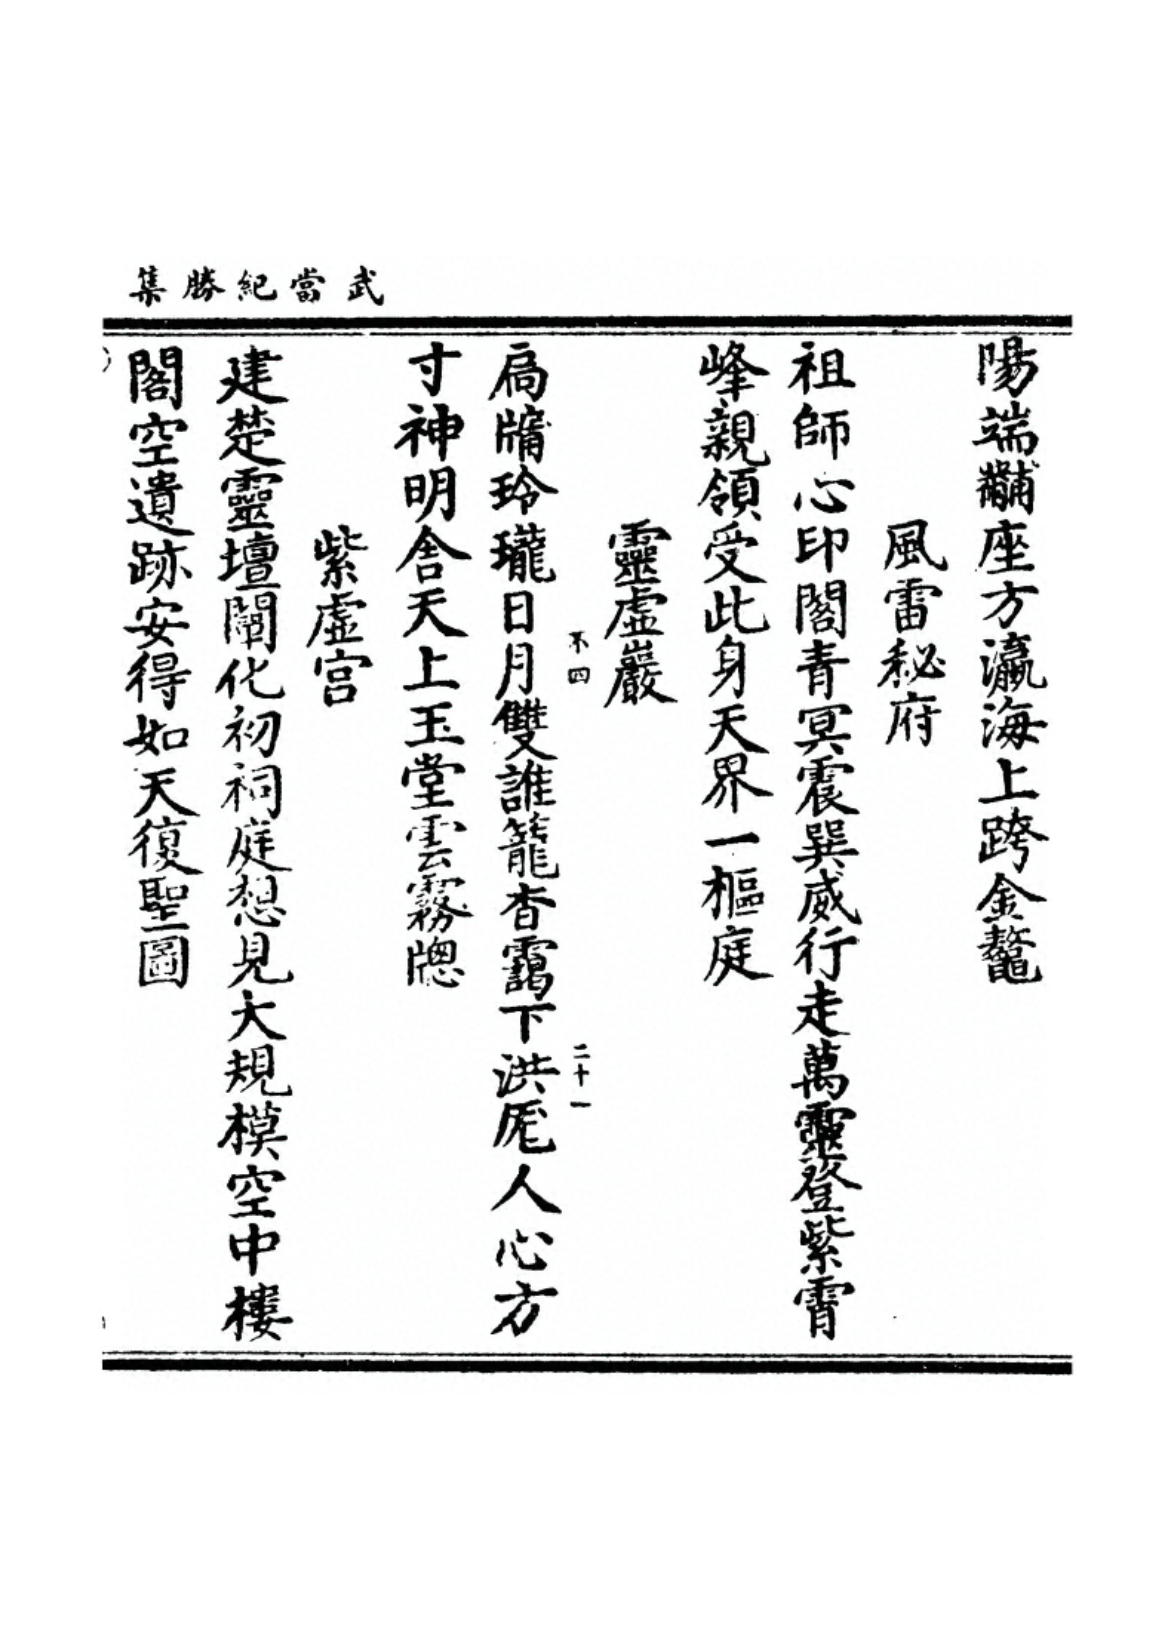 武當紀勝集
陽端黼座方瀛海上跨金鼇
風雷秘府
祖師心印閣青冥震巽威行走萬靈登紫霄
峰親領受此身天界一樞庭
靈虛巖
不四
二十一
扃牖玲瓏日月雙誰籠杳靄下洪厖人心方
寸神明舍天上玉堂雲霧牕
紫虛宫
建楚靈壇闡化初祠庭想見大規模空中樓
閣空遺跡安得如天復聖圖